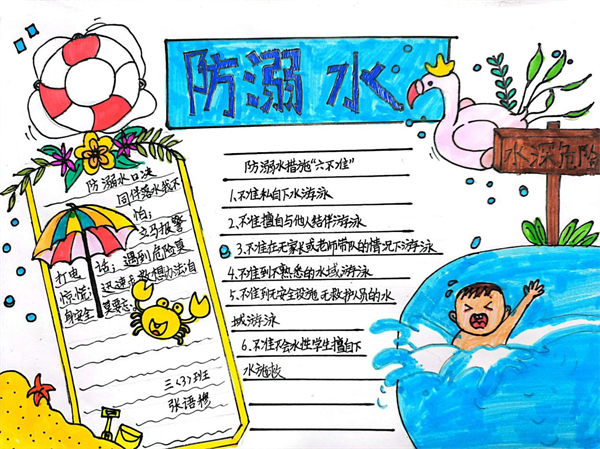 防溺水
水深危险
防溺水口决
同伴落水我不
怕；
立马报警
打电话；遇到危险莫
惊慌，迅速自救想办法自
身安全
防溺水措施“六不准”
1.不准私自下水游泳
2.不准擅自与他人结伴游泳
3.不准在无家长或老师带队的情况下游泳
4.不准到不熟悉的水域游泳
5.不准到无安全设施无救护人员的水
域游泳
6.不准不会水性学生擅自下
水施救
三〈3〉班
张语穆